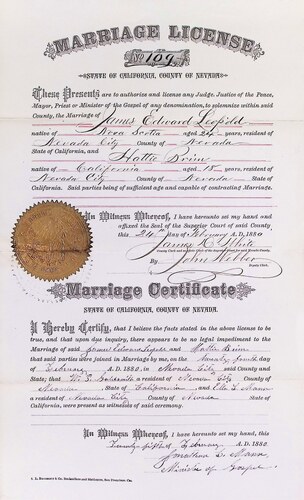 MARRIAGE LICENSE
No. 109
STATE OF CALIFORNIA, COUNTY OF NEVADA.
These Presents are to authorize and license any Judge, Justice of the Peace,
Mayor, Priest or Minister of the Gospel of any denomination, to solemnize within said
County, the Marriage of James Edward
native of Nova Scotia aged 24 years, resident of
Nevada City County of Nevada
State of California, and Hattie
native of California aged 18 years, resident of
Nevada City County of Nevada State of
California. Said parties being of sufficient age and capable of contracting Marriage.
In Witness Whereof, I have hereunto set my hand and
affixed the Seal of the Superior Court of said County
this 24th Day of February A. D. 188
James
By John Webber
Deputy Clerk
Marriage Certificate
STATE OF CALIFORNIA, COUNTY OF NEVADA.
I Hereby Certify, that I believe the facts stated in the above license to be
true, and that upon due inquiry, there appears to be no legal impediment to the
Marriage of said James Edward and Hattie
that said parties were joined in Marriage by me, on the Twenty fourth day
of February A. D. 1880, in Nevada City said County and
State; that a resident of Nevada City County of
Nevada State of California and
a resident of Nevada City County of Nevada State of
California, were present as witnesses of said ceremony.
In Witness Whereof, I have hereunto set my hand, this
Twenty February A. D. 1880
Minister of Gospel